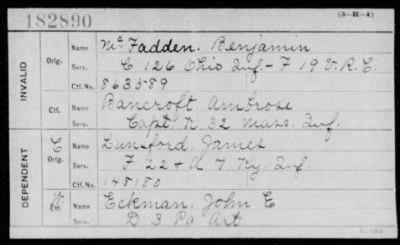 182890
(3-H-4)
INVALID
Orig.
Name McFadden. Benjamin
Serv. C 126 Ohio Inf - F 19 V.R.C.
Ctf. No. 863589
Ctf.
Name Bancroft Ambrose
Serv. Capt. K 32 Mass. Inf.
DEPENDENT
C Orig.
Name Lunsford, James
Serv. F 22 + A 7 Ky. Inf.
Ctf. No. 148180
Ctf.
Name Eckman, John E
Serv. D 3 Pa Art